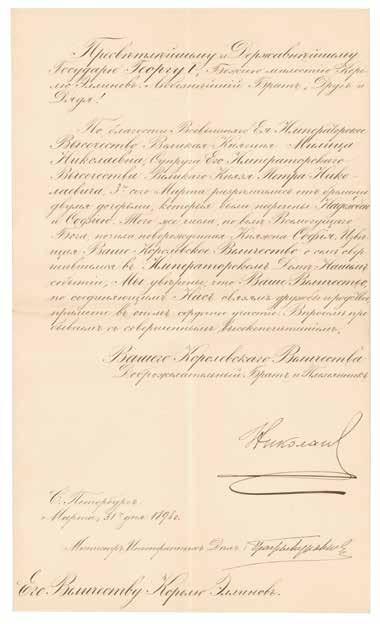 Пресвѣтлѣйшему и Державнѣйшему
Государю Георгу I, Божіею милостію Коро-
лю Эллиновъ. Любезнѣйшій Братъ, Другъ и
Дядя!
По благости Всевышняго Ея Императорское
Высочество Великая Княгиня Милица
Николаевна, Супруга Его Императорскаго
Высочества Великаго Князя Петра Нико-
лаевича, 3го сего Марта разрѣшилась отъ бремени
двумя дочерьми, которыя были наречены
и Софією. Того же числа, по волѣ Всемогущаго
Бога, новорожденная Княжна Софія. Извѣ-
щая Ваше Королевское Величество о семъ
въ Императорскомъ Домѣ Нашемъ
событіи, Мы увѣрены, что Ваше Величество,
по соединяющимъ Насъ дружбы
примете въ ономъ сердечное участіе. Впрочемъ пре-
бываемъ съ совершеннымъ высокопочитаніемъ,
Вашего Королевскаго Величества
Доброжелательный Братъ и Племянникъ
Николай
С. Петербургъ
Марта, 31го дня 1898 г.
Министръ Иностранныхъ Дѣлъ
Его Величеству Королю Эллиновъ.